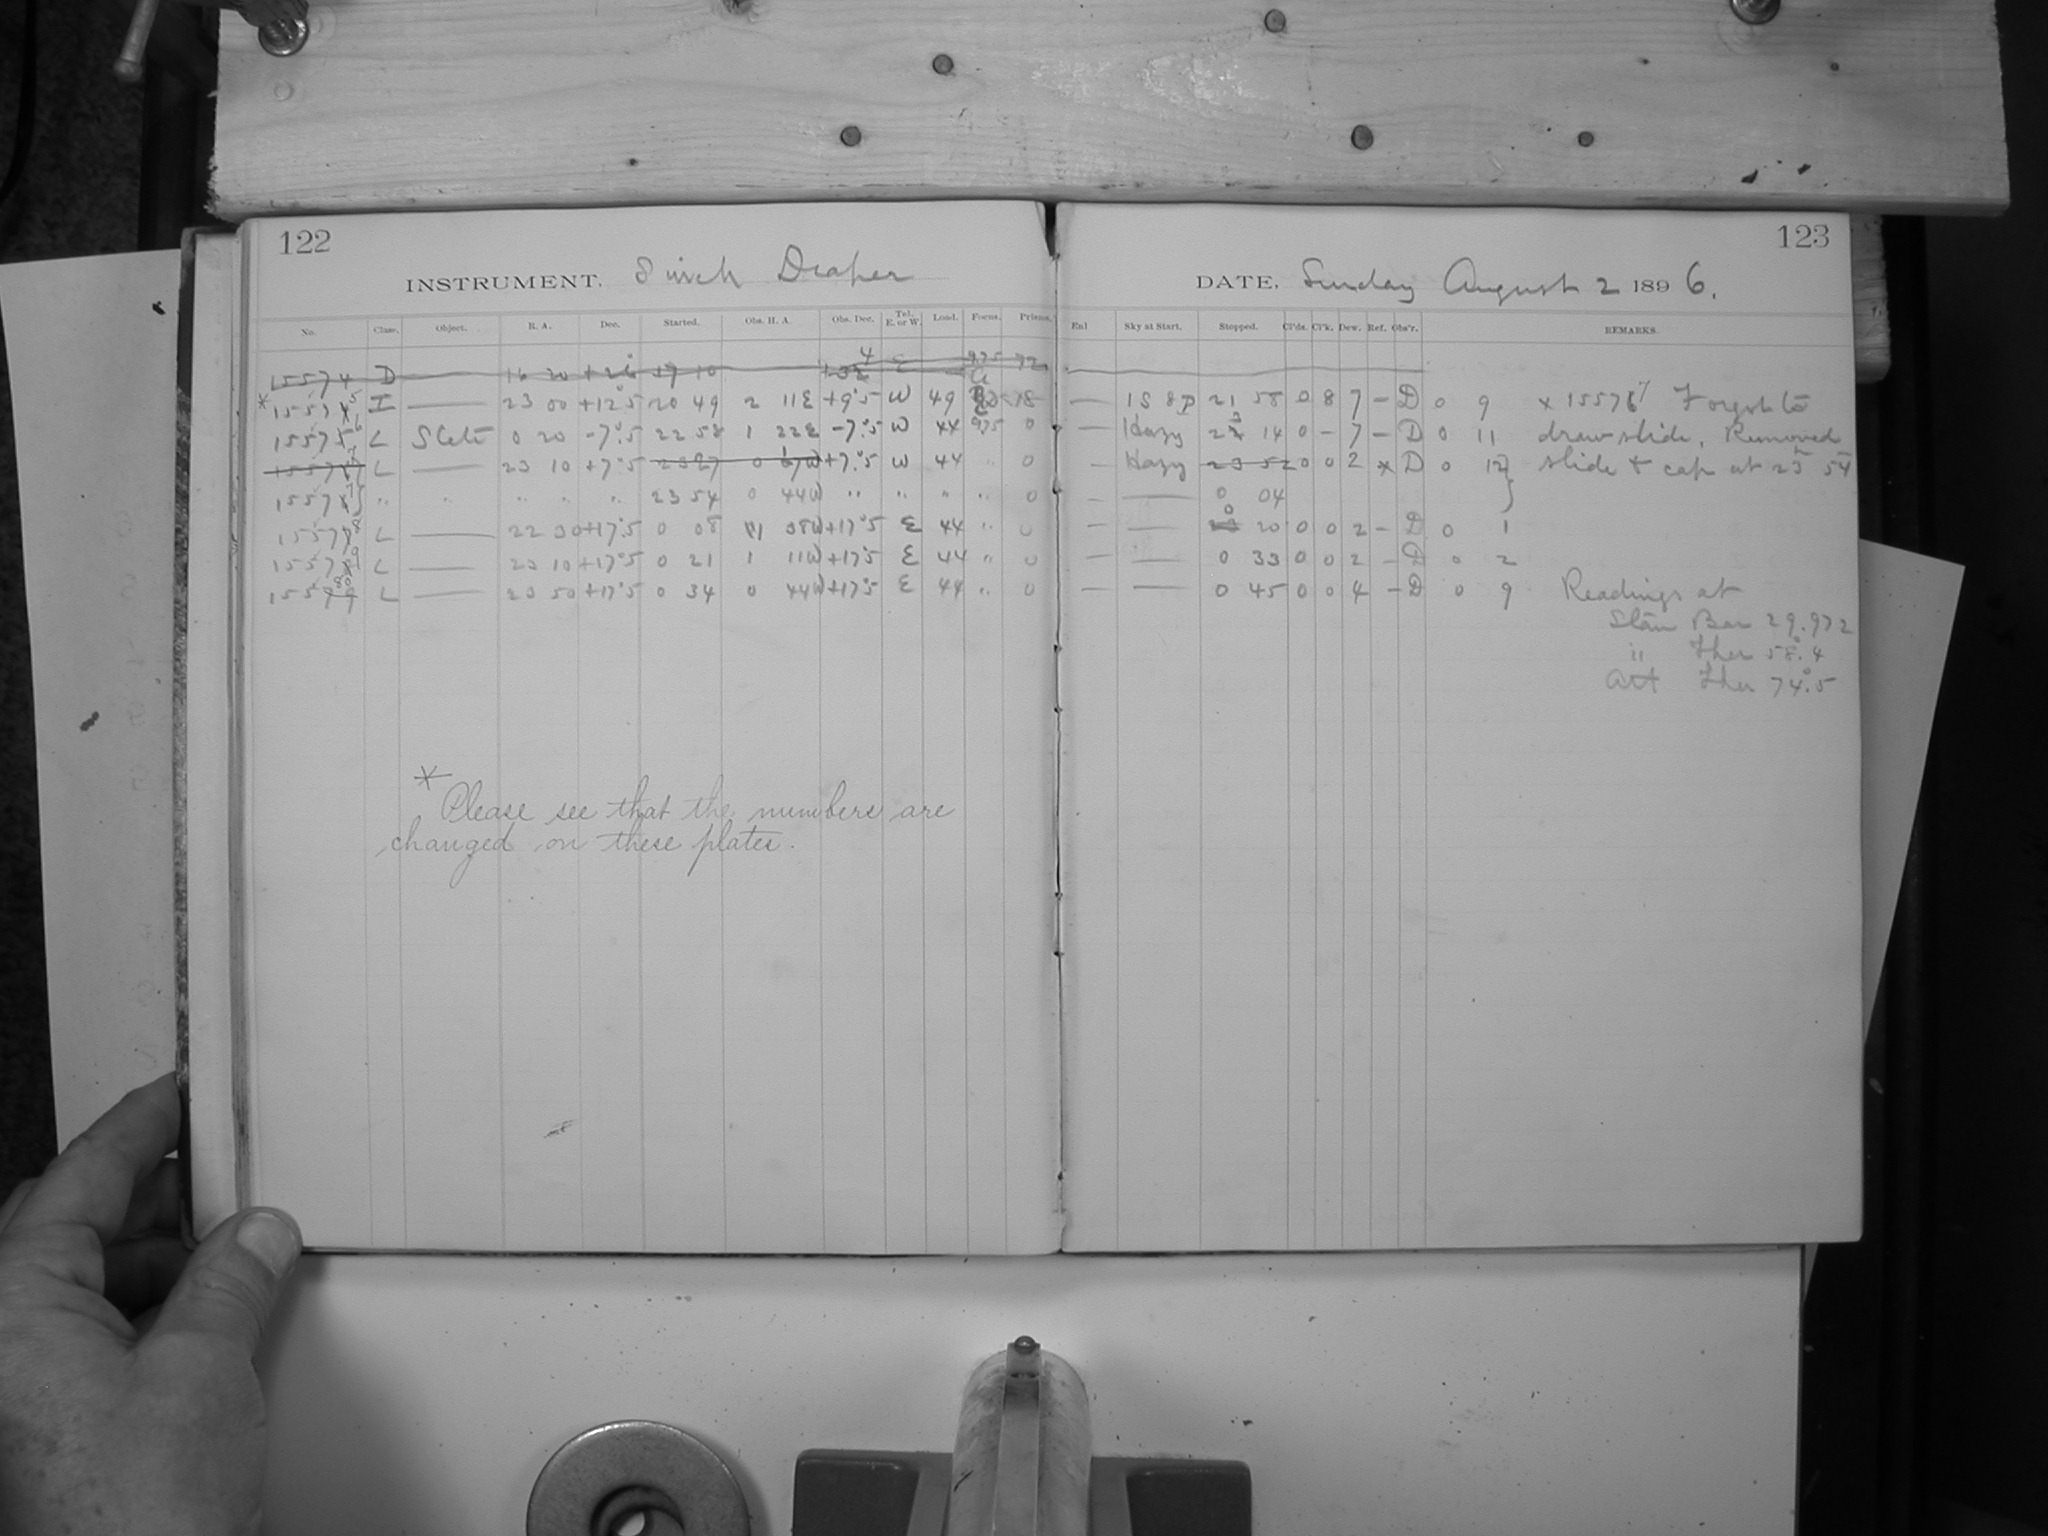 122
INSTRUMENT. 8 inch Draper
No. Class. Object. R. A. Dec. Started. Obs. H. A. Obs. Dec. Tel. E. or W. Load. Focus. Prisms.
15574 D 16 20 +26 19 10 E 9.75
* 15575 I 23 00 +12°.5 20 49 2 11E +9°.5 W 49
15576 L 0 20 -7°.5 22 58 1 22E -7°.5 W 44 9.75 0
15577 L 23 10 +7°.5 23 27 0 17W +7°.5 W 44 " 0
15577 " " " " " 23 54 0 44W " " " " 0
15578 L 22 30 +17°.5 0 08 08W +17°.5 E 44 " 0
15579 L 23 10 +17°.5 0 21 1 11W +17°.5 E 44 " 0
15580 L 23 50 +17°.5 0 34 0 44W +17°.5 E 44 " 0
*
Please see that the numbers are
changed on these plates.
123
DATE, Sunday August 2 1896.
Enl Sky at Start. Stopped. Cl'ds. Cl'k. Dew. Ref. Obs'r. REMARKS.
— 1S 8P 21 58 0 8 7 — D 0 9 x 15577 Forgot to
— Hazy 23 14 0 — 7 — D 0 11 draw slide. Removed
— Hazy 23 52 0 0 2 x D 0 12 slide & cap at 23h 54
— — 0 04
— — 0 20 0 0 2 — D 0 1
— — 0 33 0 0 2 — D 0 2
— — 0 45 0 0 4 — D 0 9 Readings at
Bar 29.972
" Ther 58°.4
Att Ther 74°.5